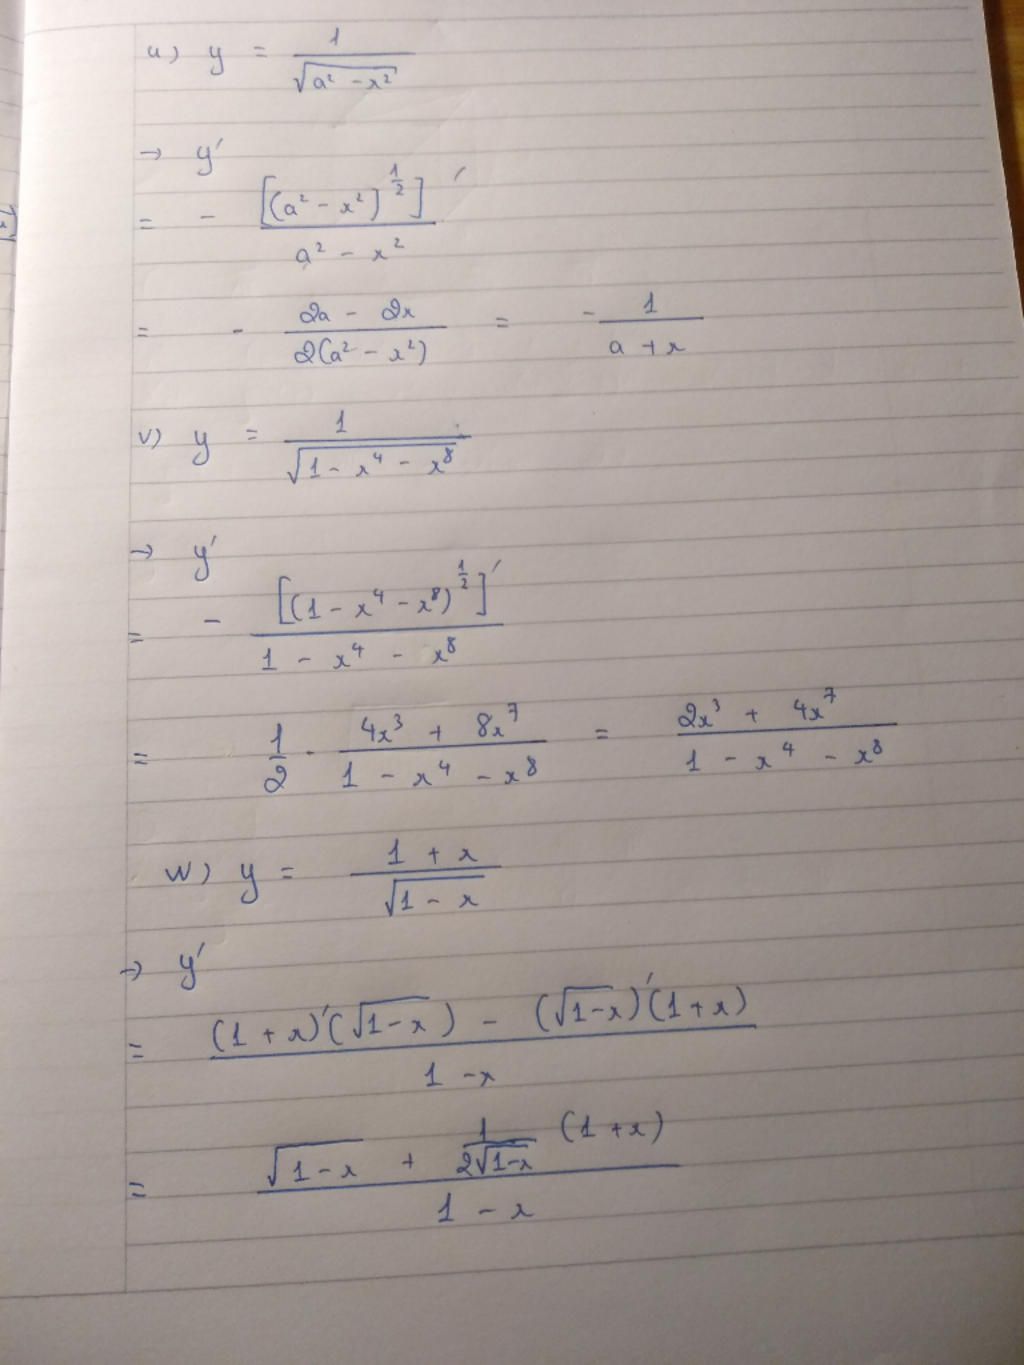 u) y = 1/√(a² - x²)
→ y'
= - [(a² - x²)^(1/2)]' / (a² - x²)
= - (2a - 2x) / (2(a² - x²)) = - 1/(a + x)
v) y = 1/√(1 - x⁴ - x⁸)
→ y'
= - [(1 - x⁴ - x⁸)^(1/2)]' / (1 - x⁴ - x⁸)
= 1/2 · (4x³ + 8x⁷) / (1 - x⁴ - x⁸) = (2x³ + 4x⁷) / (1 - x⁴ - x⁸)
w) y = (1 + x) / √(1 - x)
→ y'
= ((1 + x)'(√(1-x)) - (√(1-x))'(1+x)) / (1 - x)
= (√(1-x) + 1/(2√(1-x)) (1+x)) / (1 - x)